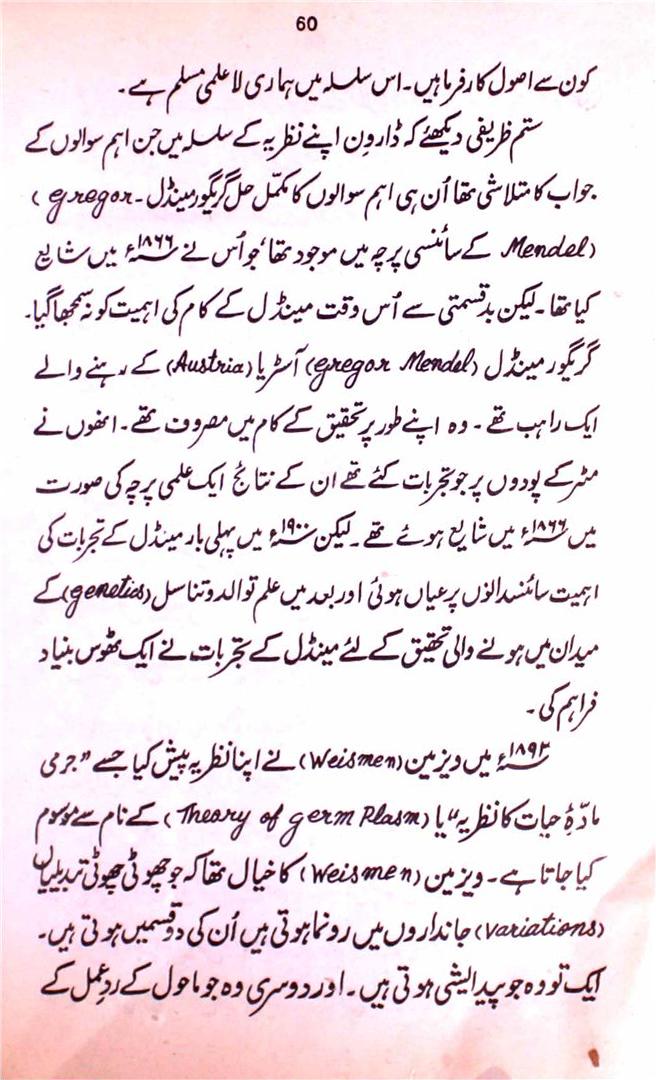 60
کون سے اصول کارفرما ہیں۔ اس سلسلہ میں ہماری لاعلمی مسلم ہے۔
ستم ظریفی دیکھئے کہ ڈارون اپنے نظریہ کے سلسلہ میں جن اہم سوالوں کے
جواب کا متلاشی تھا اُن ہی اہم سوالوں کا مکمّل حل گریگور مینڈل۔ (Gregor
Mendel) کے سائنسی پرچہ میں موجود تھا، جو اُس نے ۱۸۶۶ء میں شایع
کیا تھا۔ لیکن بدقسمتی سے اُس وقت مینڈل کے کام کی اہمیت کو نہ سمجھا گیا۔
گریگور مینڈل (Gregor Mendel) آسٹریا (Austria) کے رہنے والے
ایک راہب تھے۔ وہ اپنے طور پر تحقیق کے کام میں مصروف تھے۔ انھوں نے
مٹر کے پودوں پر جو تجربات کئے تھے ان کے نتائج ایک علمی پرچہ کی صورت
میں ۱۸۶۶ء میں شایع ہوئے تھے۔ لیکن ۱۹۰۰ء میں پہلی بار مینڈل کے تجربات کی
اہمیت سائنسدانوں پر عیاں ہوئی اور بعد میں علم توالد و تناسل (genetics) کے
میدان میں ہونے والی تحقیق کے لئے مینڈل کے تجربات نے ایک ٹھوس بنیاد
فراہم کی۔
۱۸۹۲ء میں ویزمین (Weismen) نے اپنا نظریہ پیش کیا جسے "جرمی
مادّۂ حیات کا نظریہ" یا (Theory of germ Plasm) کے نام سے موسوم
کیا جاتا ہے۔ ویزمین (Weismen) کا خیال تھا کہ جو چھوٹی چھوٹی تبدیلیاں
(variations) جانداروں میں رونما ہوتی ہیں اُن کی دو قسمیں ہوتی ہیں۔
ایک تو وہ جو پیدایشی ہوتی ہیں۔ اور دوسری وہ جو ماحول کے ردِعمل کے